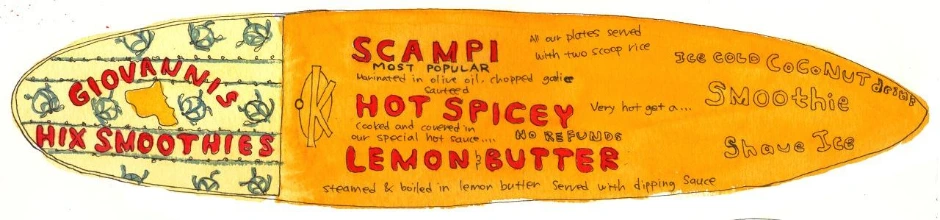 GIOVANNIS
HIX SMOOTHIES
SCAMPI
MOST POPULAR
Marinated in olive oil. chopped garlic
sauteed
HOT SPICEY
Cooked and covered in
our special hot sauce.... NO REFUNDS
LEMON & BUTTER
steamed & boiled in lemon butter served with dipping sauce
All our plates served
with two scoop rice
Very hot get a...
ICE COLD COCONUT drink
SMOOthie
Shave Ice